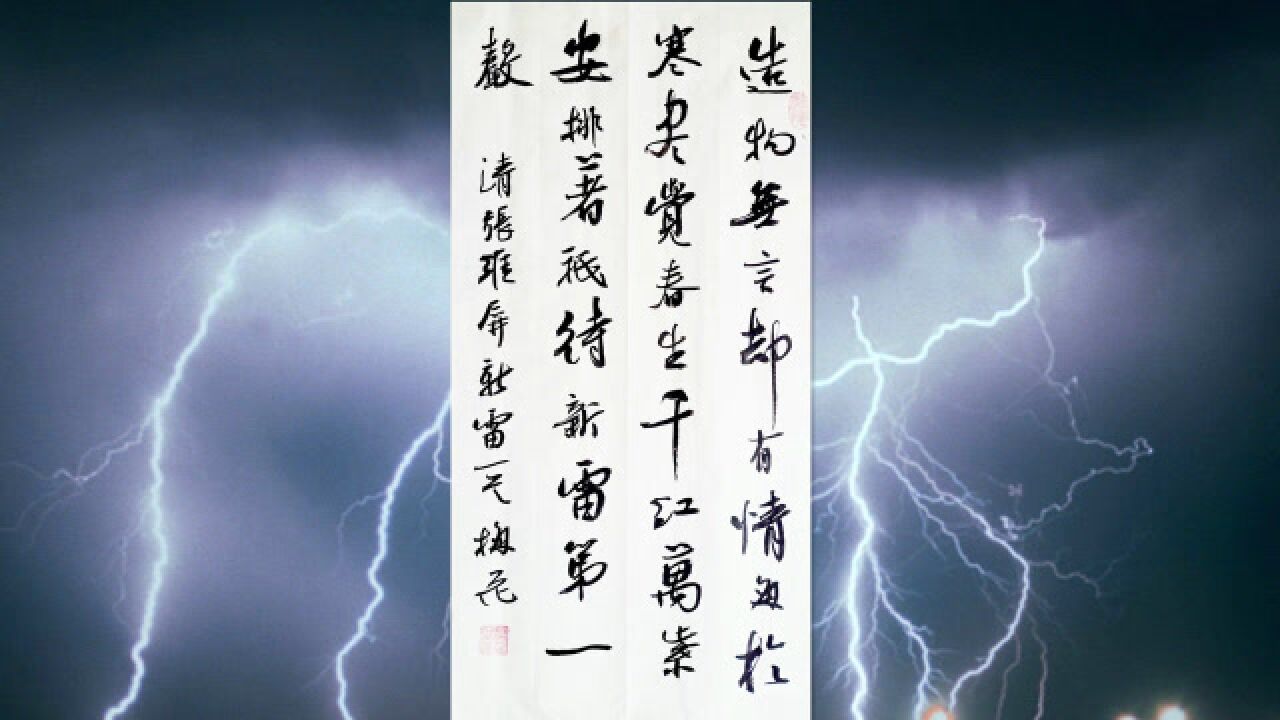 造物無言却有情每於
寒盡覺春生千紅萬紫
安排著祇待新雷第一
聲
清張維屏新雷一元梅花